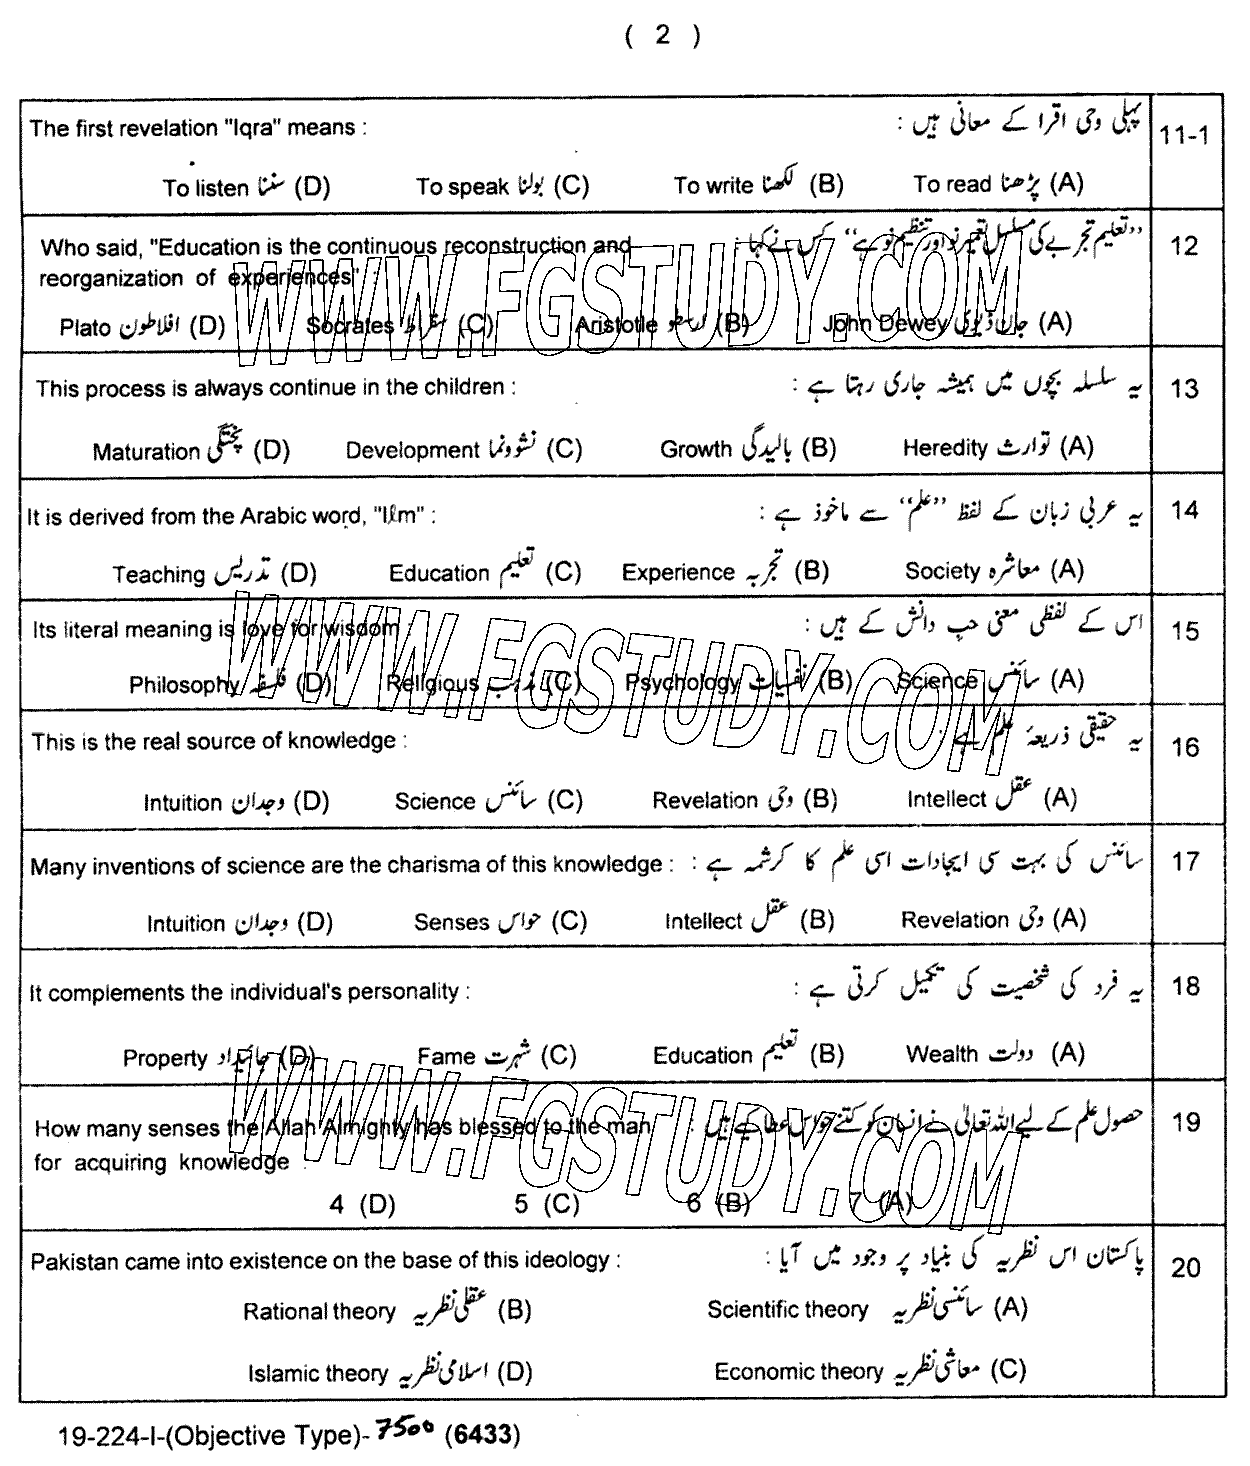 ( 2 )
The first revelation "Iqra" means : پہلی وحی اقرا کے معانی ہیں : 11-1
To listen سننا (D) To speak بولنا (C) To write لکھنا (B) To read پڑھنا (A)
Who said, "Education is the continuous reconstruction and ’’تعلیم تجربے کی مسلسل تعمیر نو اور تنظیم نو ہے‘‘ کس نے کہا : 12
reorganization of experiences" :
Plato افلاطون (D) Socrates سقراط (C) Aristotle ارسطو (B) John Dewey جان ڈیوی (A)
This process is always continue in the children : یہ سلسلہ بچوں میں ہمیشہ جاری رہتا ہے : 13
Maturation پختگی (D) Development نشوونما (C) Growth بالیدگی (B) Heredity توارث (A)
It is derived from the Arabic word, "Ilm" : یہ عربی زبان کے لفظ ’’علم‘‘ سے ماخوذ ہے : 14
Teaching تدریس (D) Education تعلیم (C) Experience تجربہ (B) Society معاشرہ (A)
Its literal meaning is love for wisdom : اس کے لفظی معنی حب دانش کے ہیں : 15
Philosophy فلسفہ (D) Religious مذہب (C) Psychology نفسیات (B) Science سائنس (A)
This is the real source of knowledge : یہ حقیقی ذریعۂ علم ہے : 16
Intuition وجدان (D) Science سائنس (C) Revelation وحی (B) Intellect عقل (A)
Many inventions of science are the charisma of this knowledge : سائنس کی بہت سی ایجادات اسی علم کا کرشمہ ہے : 17
Intuition وجدان (D) Senses حواس (C) Intellect عقل (B) Revelation وحی (A)
It complements the individual's personality : یہ فرد کی شخصیت کی تکمیل کرتی ہے : 18
Property جائیداد (D) Fame شہرت (C) Education تعلیم (B) Wealth دولت (A)
How many senses the Allah Almighty has blessed to the man حصول علم کے لیے اللہ تعالیٰ نے انسان کو کتنے حواس عطا کیے ہیں : 19
for acquiring knowledge :
4 (D) 5 (C) 6 (B) 7 (A)
Pakistan came into existence on the base of this ideology : پاکستان اس نظریہ کی بنیاد پر وجود میں آیا : 20
Rational theory عقلی نظریہ (B) Scientific theory سائنسی نظریہ (A)
Islamic theory اسلامی نظریہ (D) Economic theory معاشی نظریہ (C)
19-224-I-(Objective Type)- 7500 (6433)
WWW.FGSTUDY.COM
WWW.FGSTUDY.COM
WWW.FGSTUDY.COM